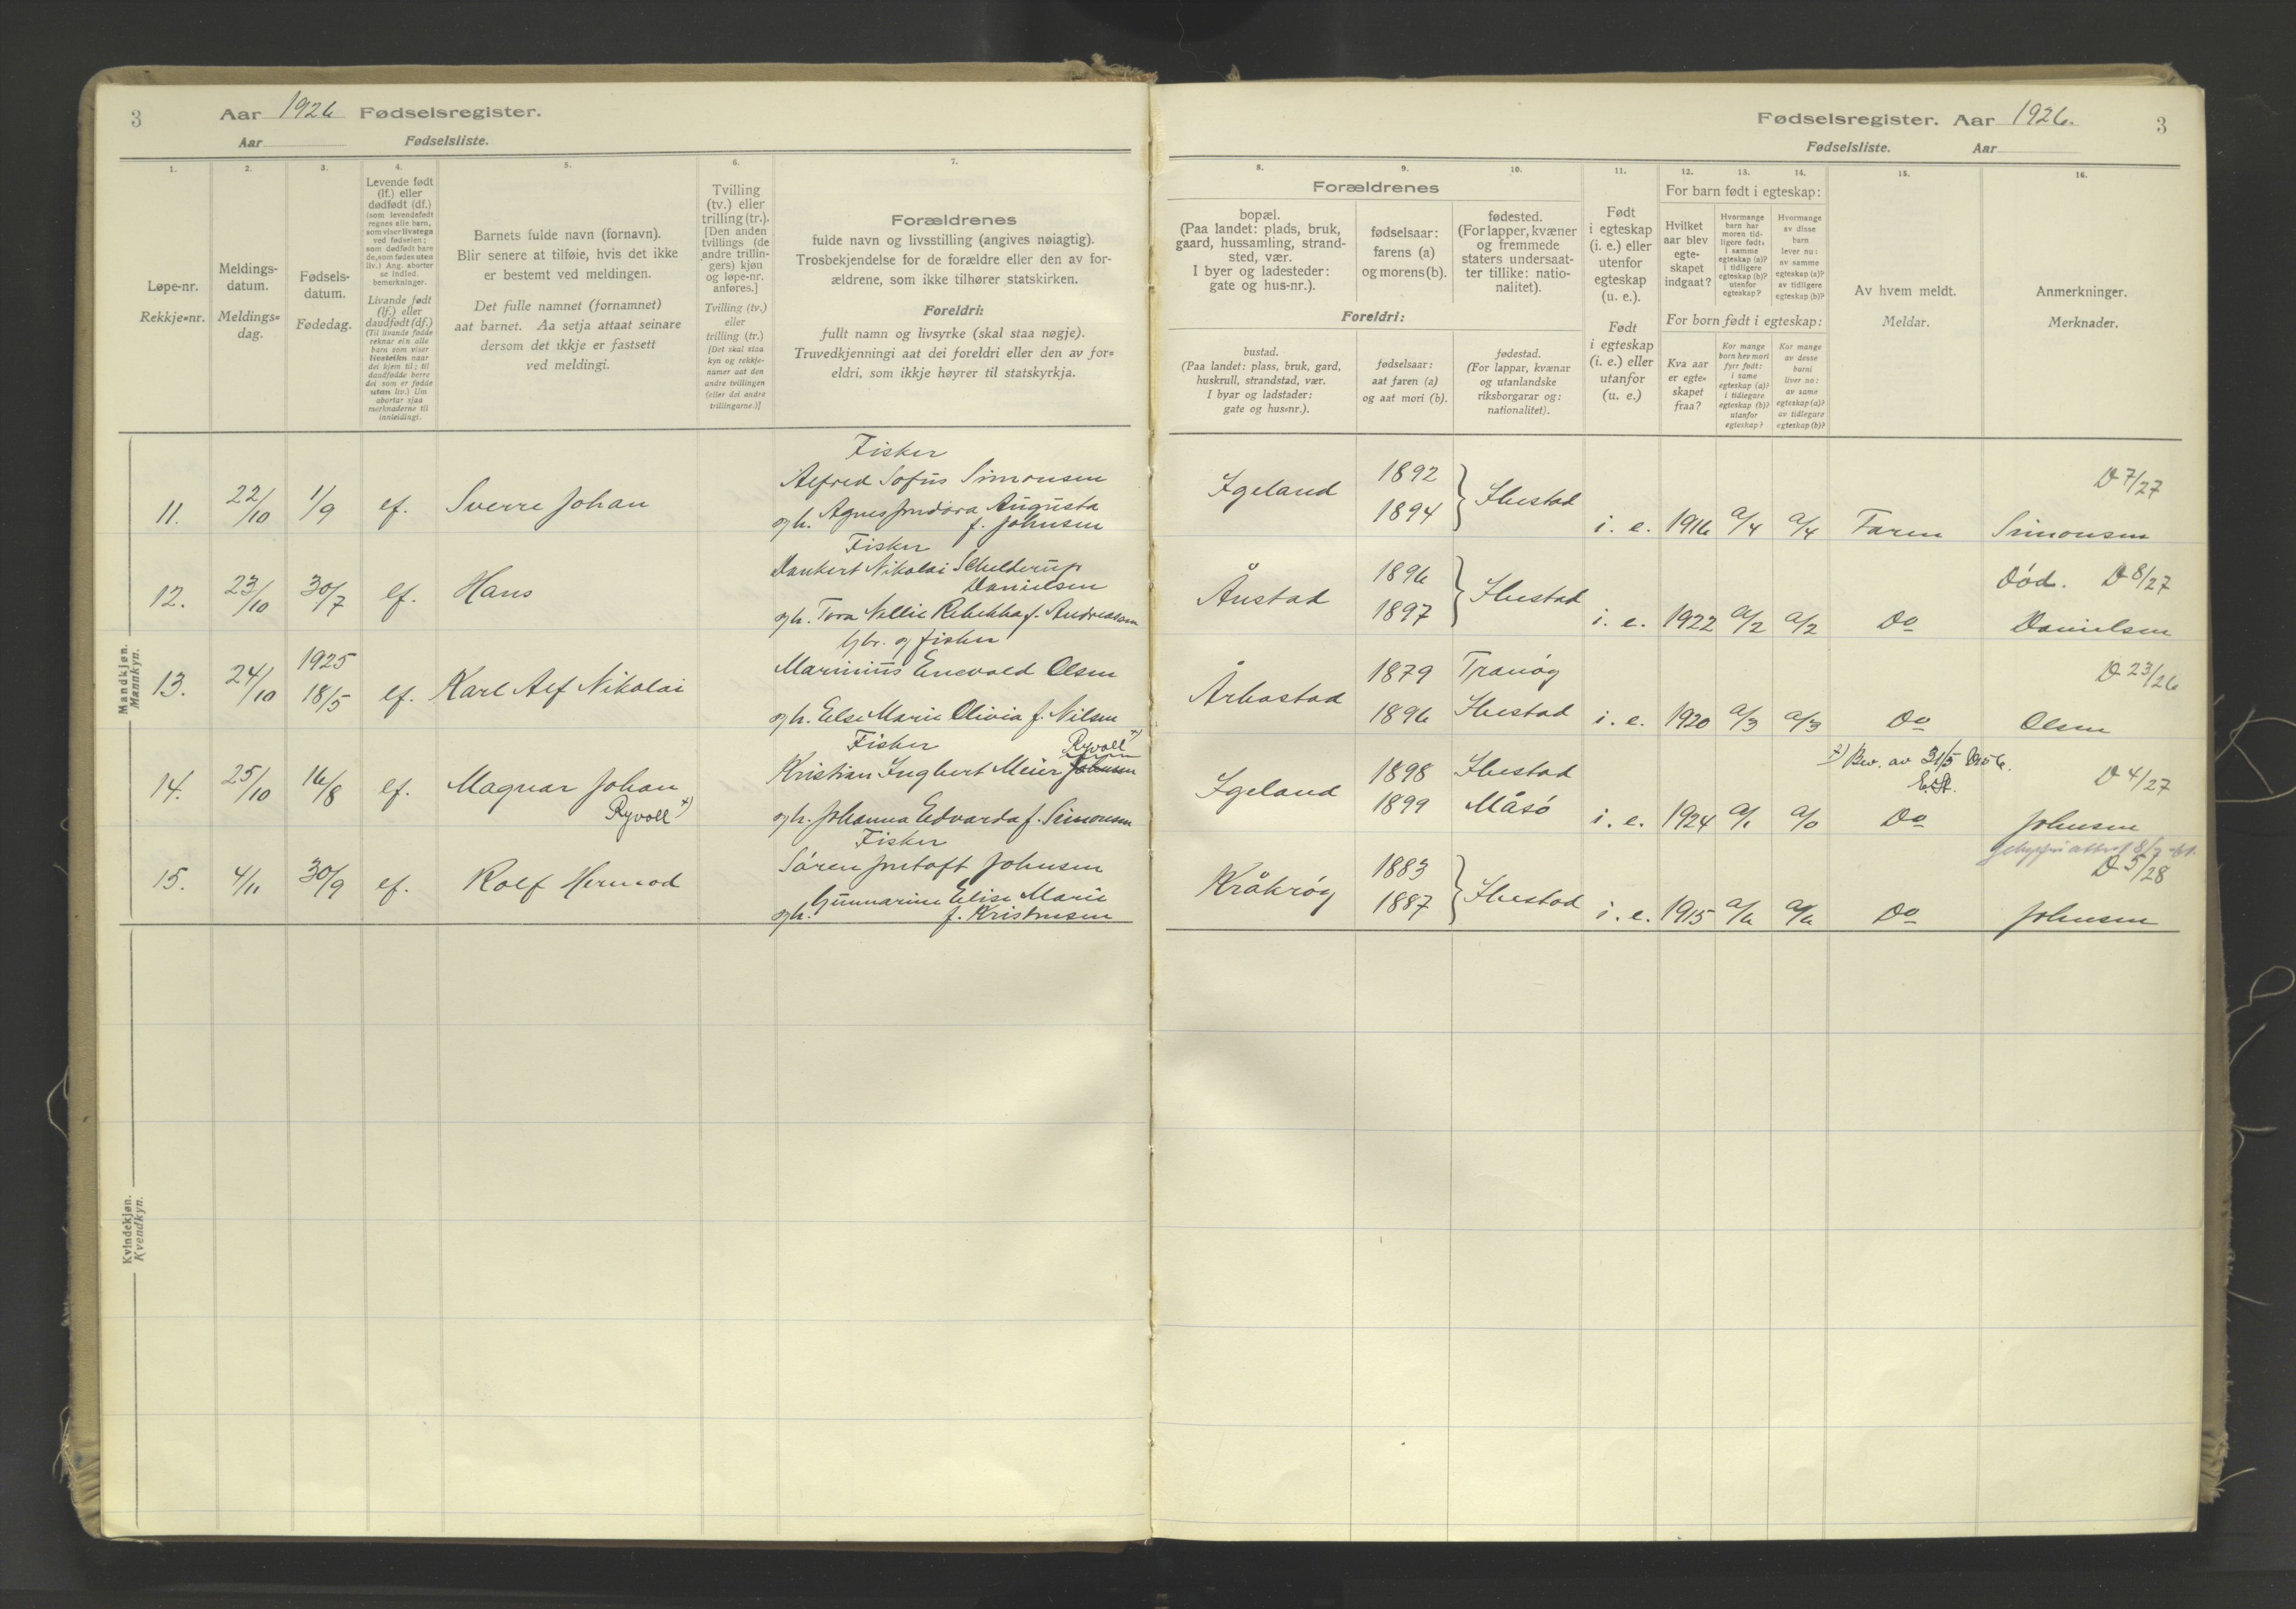 3 Aar 1926 Fødselsregister.
Aar Fødselsliste.
Fødselsregister. Aar 1926. 3
Fødselsliste. Aar
1. 2. 3. 4. 5. 6. 7.
Løpe-nr.
Rekkje-nr.
Meldings-
datum.
Meldings-
dag.
Fødsels-
datum.
Fødedag.
Levende født
(lf.) eller
dødfødt (df.)
(som levendefødt
regnes alle barn,
som viser livstegn
ved fødselen;
som dødfødt bare
de, som fødes uten
liv.) Ang. aborter
se indled.
bemerkninger.
Livande født
(lf.) eller
daudfødt (df.)
(Til livande fødde
reknar ein alle
barn som viser
livsteikn naar
dei kjem til; til
daudfødde berre
dei som er fødde
utan liv.) Um
abortar sjaa
merknaderne til
innleidingi.
Barnets fulde navn (fornavn).
Blir senere at tilføie, hvis det ikke
er bestemt ved meldingen.
Det fulle namnet (fornamnet)
aat barnet. Aa setja attaat seinare
dersom det ikkje er fastsett
ved meldingi.
Tvilling
(tv.) eller
trilling (tr.).
[Den anden
tvillings (de
andre trillin-
gers) kjøn
og løpe-nr.
anføres.]
Tvilling (tv.)
eller
trilling (tr.)
[Det skal staa
kyn og rekkje-
numer aat den
andre tvillingen
(eller dei andre
trillingarne.)]
Forældrenes
fulde navn og livsstilling (angives nøiagtig).
Trosbekjendelse for de forældre eller den av for-
ældrene, som ikke tilhører statskirken.
Foreldri:
fullt namn og livsyrke (skal staa nøgje).
Truvedkjenningi aat dei foreldri eller den av for-
eldri, som ikkje høyrer til statskyrkja.
8. 9. 10. 11. 12. 13. 14. 15. 16.
Forældrenes
bopæl.
(Paa landet: plads, bruk,
gaard, hussamling, strand-
sted, vær.
I byer og ladesteder:
gate og hus-nr.).
fødselsaar:
farens (a)
og morens (b).
fødested.
(For lapper, kvæner
og fremmede
staters undersaat-
ter tillike: natio-
nalitet).
Foreldri:
bustad.
(Paa landet: plass, bruk, gard,
huskrull, strandstad, vær.
I byar og ladstader:
gate og hus-nr.).
fødselsaar:
aat faren (a)
og aat mori (b).
fødestad.
(For lappar, kvænar
og utanlandske
riksborgarar og:
nationalitet).
Født
i egteskap
(i. e.) eller
utenfor
egteskap
(u. e.).
Født
i egteskap
(i. e.) eller
utanfor
(u. e.)
For barn født i egteskap:
Hvilket
aar blev
egte-
skapet
indgaat?
Hvormange
barn har
moren tid-
ligere født:
i samme
egteskap (a)?
i tidligere
egteskap (b)?
utenfor
egteskap?
Hvormange
av disse
barn
lever nu:
av samme
egteskap (a)?
av tidligere
egteskap (b)?
For born født i egteskap:
Kva aar
er egte-
skapet
fraa?
Kor mange
born hev mori
fyrr født:
i same
egteskap (a)?
i tidlegare
egteskap (b)?
utanfor
egteskap?
Kor mange
av desse
borni
liver no:
av same
egteskap (a)?
av tidlegare
egteskap (b)?
Av hvem meldt.
Meldar.
Anmerkninger.
Merknader.
Mandkjøn.
Mannkyn.
Fisker
11. 22/10 1/9 lf. Sverre Johan Alfred Sofus Simonsen
og h. Agnes Indiøra Augusta
f. Johnsen
Igeland 1892 1894 } Ibestad i. e. 1916 a/4 a/4 Faren Simonsen D 7/27
Fisker
12. 23/10 30/7 lf. Hans Dankert Nikolai Schelderup
Danielsen
og h. Tora Nellie Rebekka f. Andreassen
Ånstad 1896 1897 } Ibestad i. e. 1922 a/2 a/2 Do Død. D 8/27
Danielsen
Gbr. og fisker
13. 24/10 1925 18/5 lf. Karl Alf Nikolai Marinius Enevold Olsen
og h. Else Marie Olivia f. Nilsen
Årbostad 1879 Tranøy
1896 Ibestad i. e. 1920 a/3 a/3 Do Olsen D 23/26
Fisker Ryvoll x)
14. 25/10 16/8 lf. Magnar Johan Kristian Ingbert Meier Johnsen
Ryvoll x)
og h. Johanna Edvarda f. Simonsen
Igeland 1898 Ibestad
1899 Måsø i. e. 1924 a/1 a/0 Do Johnsen
x) Bev. av 31/5 1956. D 4/27
Fisker
15. 4/11 30/9 lf. Rolf Hermod Søren Jentoft Johnsen
og h. Gunnarine Elise Marie
f. Kristensen
Kråkrøy 1883 1887 } Ibestad i. e. 1915 a/6 a/6 Do Johnsen
D 5/28
Kvindekjøn.
Kvendkyn.